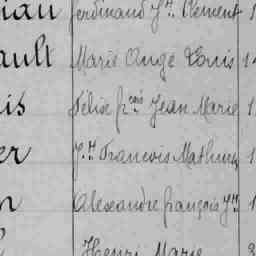 iau Ferdinand Jh Clément 1
ault Marie Ange Louis 1
is Félix fçois Jean Marie 1
er Jh Francois Mathurin 1
n Alexandre françois Jh 1
Henri Marie 3